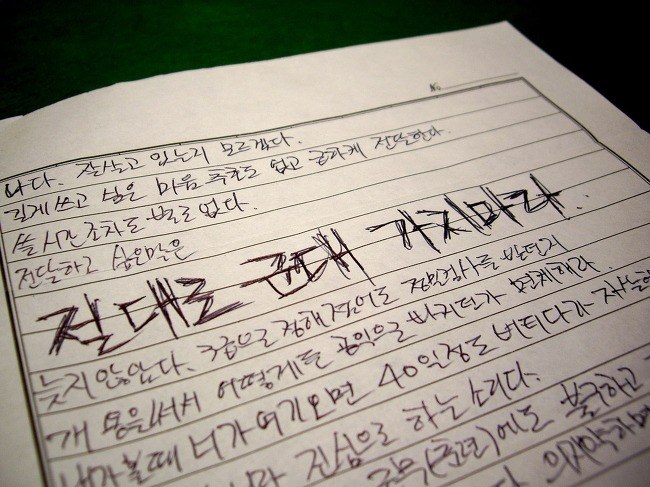 No
나다. 잘살고 있는지 모르겠다.
길게 쓰고 싶은 마음 추호도 없고 급하게 전달한다.
쓸 시간조차도 별로 없다.
전달하고 싶은말은
절대로 군대 가지마라..
늦지 않았다. 3급으로 정해졌어도 정밀검사를 받던지
개 쌩을써서 어떻게든 공익으로 빠지던가 면제해라
내가볼때 너가 여기오면 40일정도 버티다가 자살할
진심으로 하는 소리다.
에도 불구하고